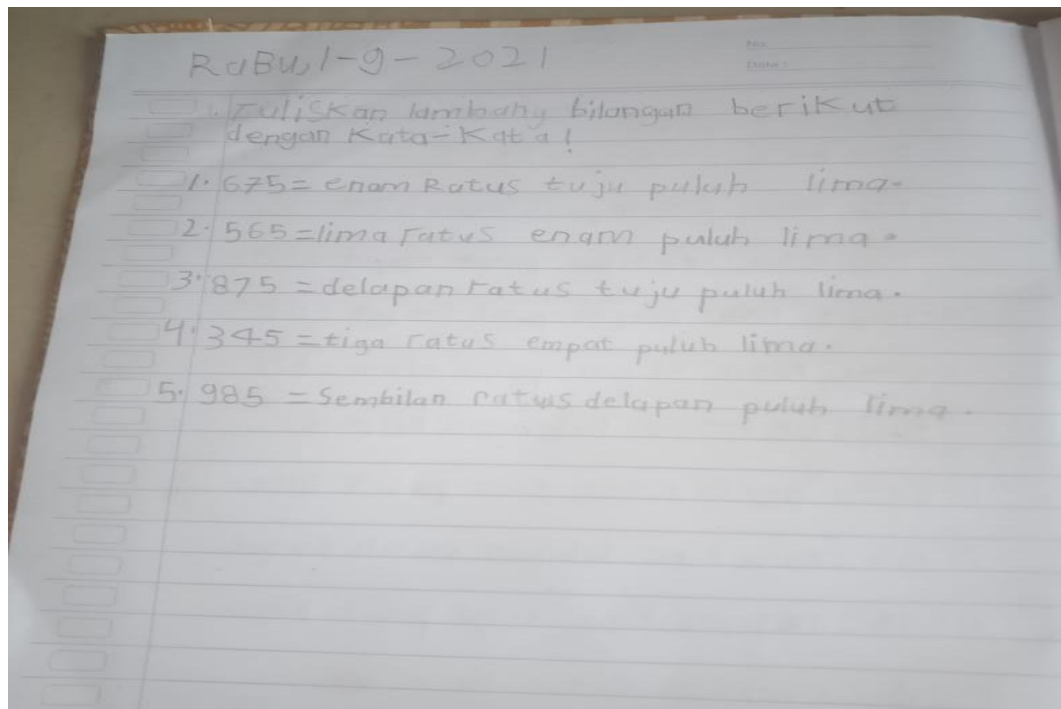 RaBu, 1-9-2021
No.
Date:
1. Tuliskan lambang bilangan berikut
dengan Kata-Kata!
1. 675 = enam Ratus tuju puluh lima.
2. 565 = lima ratus enam puluh lima.
3. 875 = delapan ratus tuju puluh lima.
4. 345 = tiga ratus empat puluh lima.
5. 985 = Sembilan ratus delapan puluh lima.